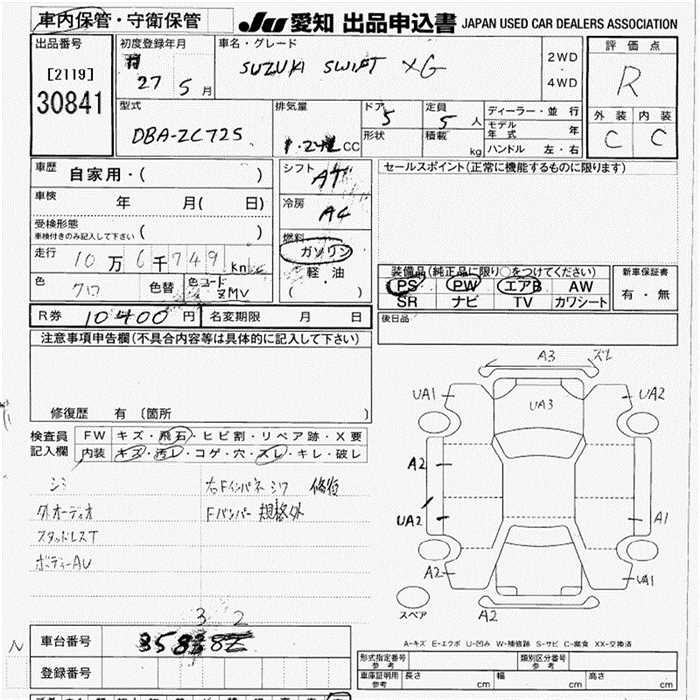 車内保管・守衛保管
JU 愛知 出品申込書 JAPAN USED CAR DEALERS ASSOCIATION
出品番号
[2119]
30841
初度登録年月
27 5 月
車名・グレード
SUZUKI SWIFT XG
2WD
4WD
評価点
R
外装 内装
C C
型式
DBA-ZC72S
排気量
1.242 CC
ドア 5
形状
定員 5 人
積載 kg
ディーラー・並行
モデル年式 年
ハンドル 左・右
車歴 自家用・( )
車検 年 月( 日)
受検形態
車検付きのみ記入して下さい ( )
走行 10万6千749 km
色 クロ 色替 色コード ZMV
シフト AT
冷房 AC
燃料
ガソリン
軽・油
( )
セールスポイント(正常に機能するものに限ります)
装備品(純正品に限り○をつけてください)
PS PW エアB AW
SR ナビ TV カワシート
新車保証書
有・無
R券 10400円 名変期限 月 日
後日品
注意事項申告欄(不具合内容等は具体的に記入して下さい)
修復歴 有 〔箇所 〕
検査員記入欄
FW キズ・飛石・ヒビ割・リペア跡・X要
内装 キズ・汚レ・コゲ・穴・スレ・キレ・破レ
シミ
右Fインパネ シワ 修復
外.オーディオ
Fバンパー 規格外
スタッドレスT
ボディーAU
A3 ズレ
UA1
UA3
UA2
A2
UA2
A1
A2
UA1
A2
スペア
A-キズ E-エクボ U-凹み W-補修跡 S-サビ C-腐食 XX-交換済
3 2
車台番号
登録番号
N
形式指定番号 参考
類別区分番号 参考
車庫証明用 参考 長さ cm 幅 cm 高さ cm